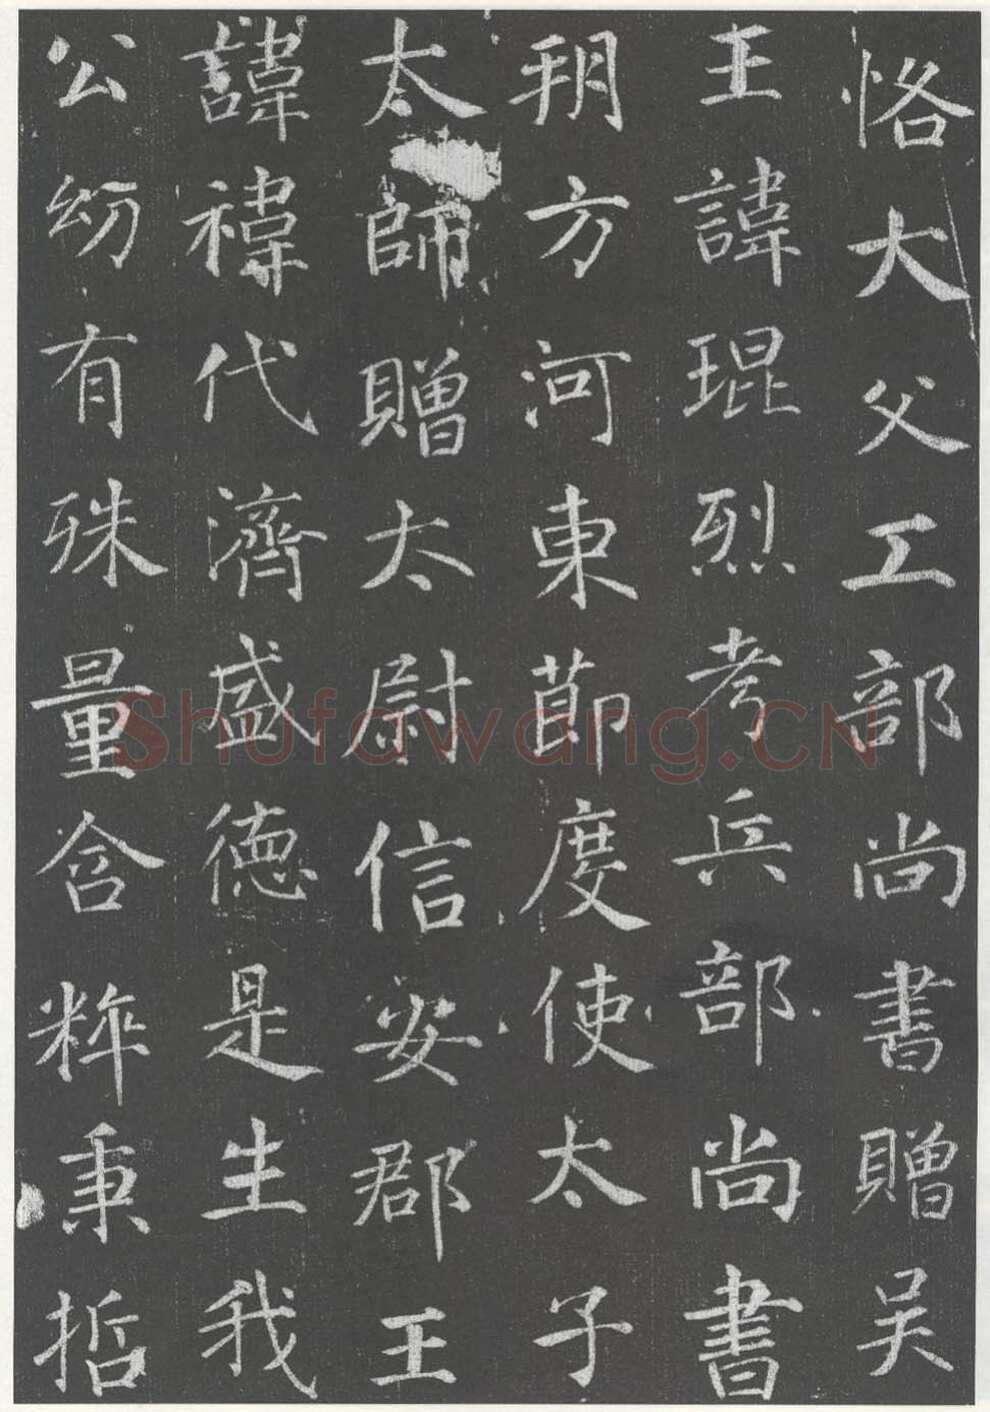 恪大父工部尚書贈吴
王諱琨烈考兵部尚書
朔方河東節度使太子
太師贈太尉信安郡王
諱禕代濟盛德是生我
公幼有殊量含粹秉哲
Shufawang.CN